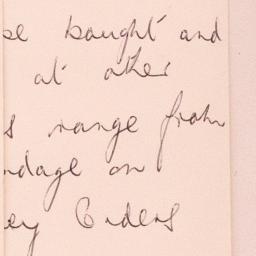 be bought and
at other
s range from
ndage on
ey Orders